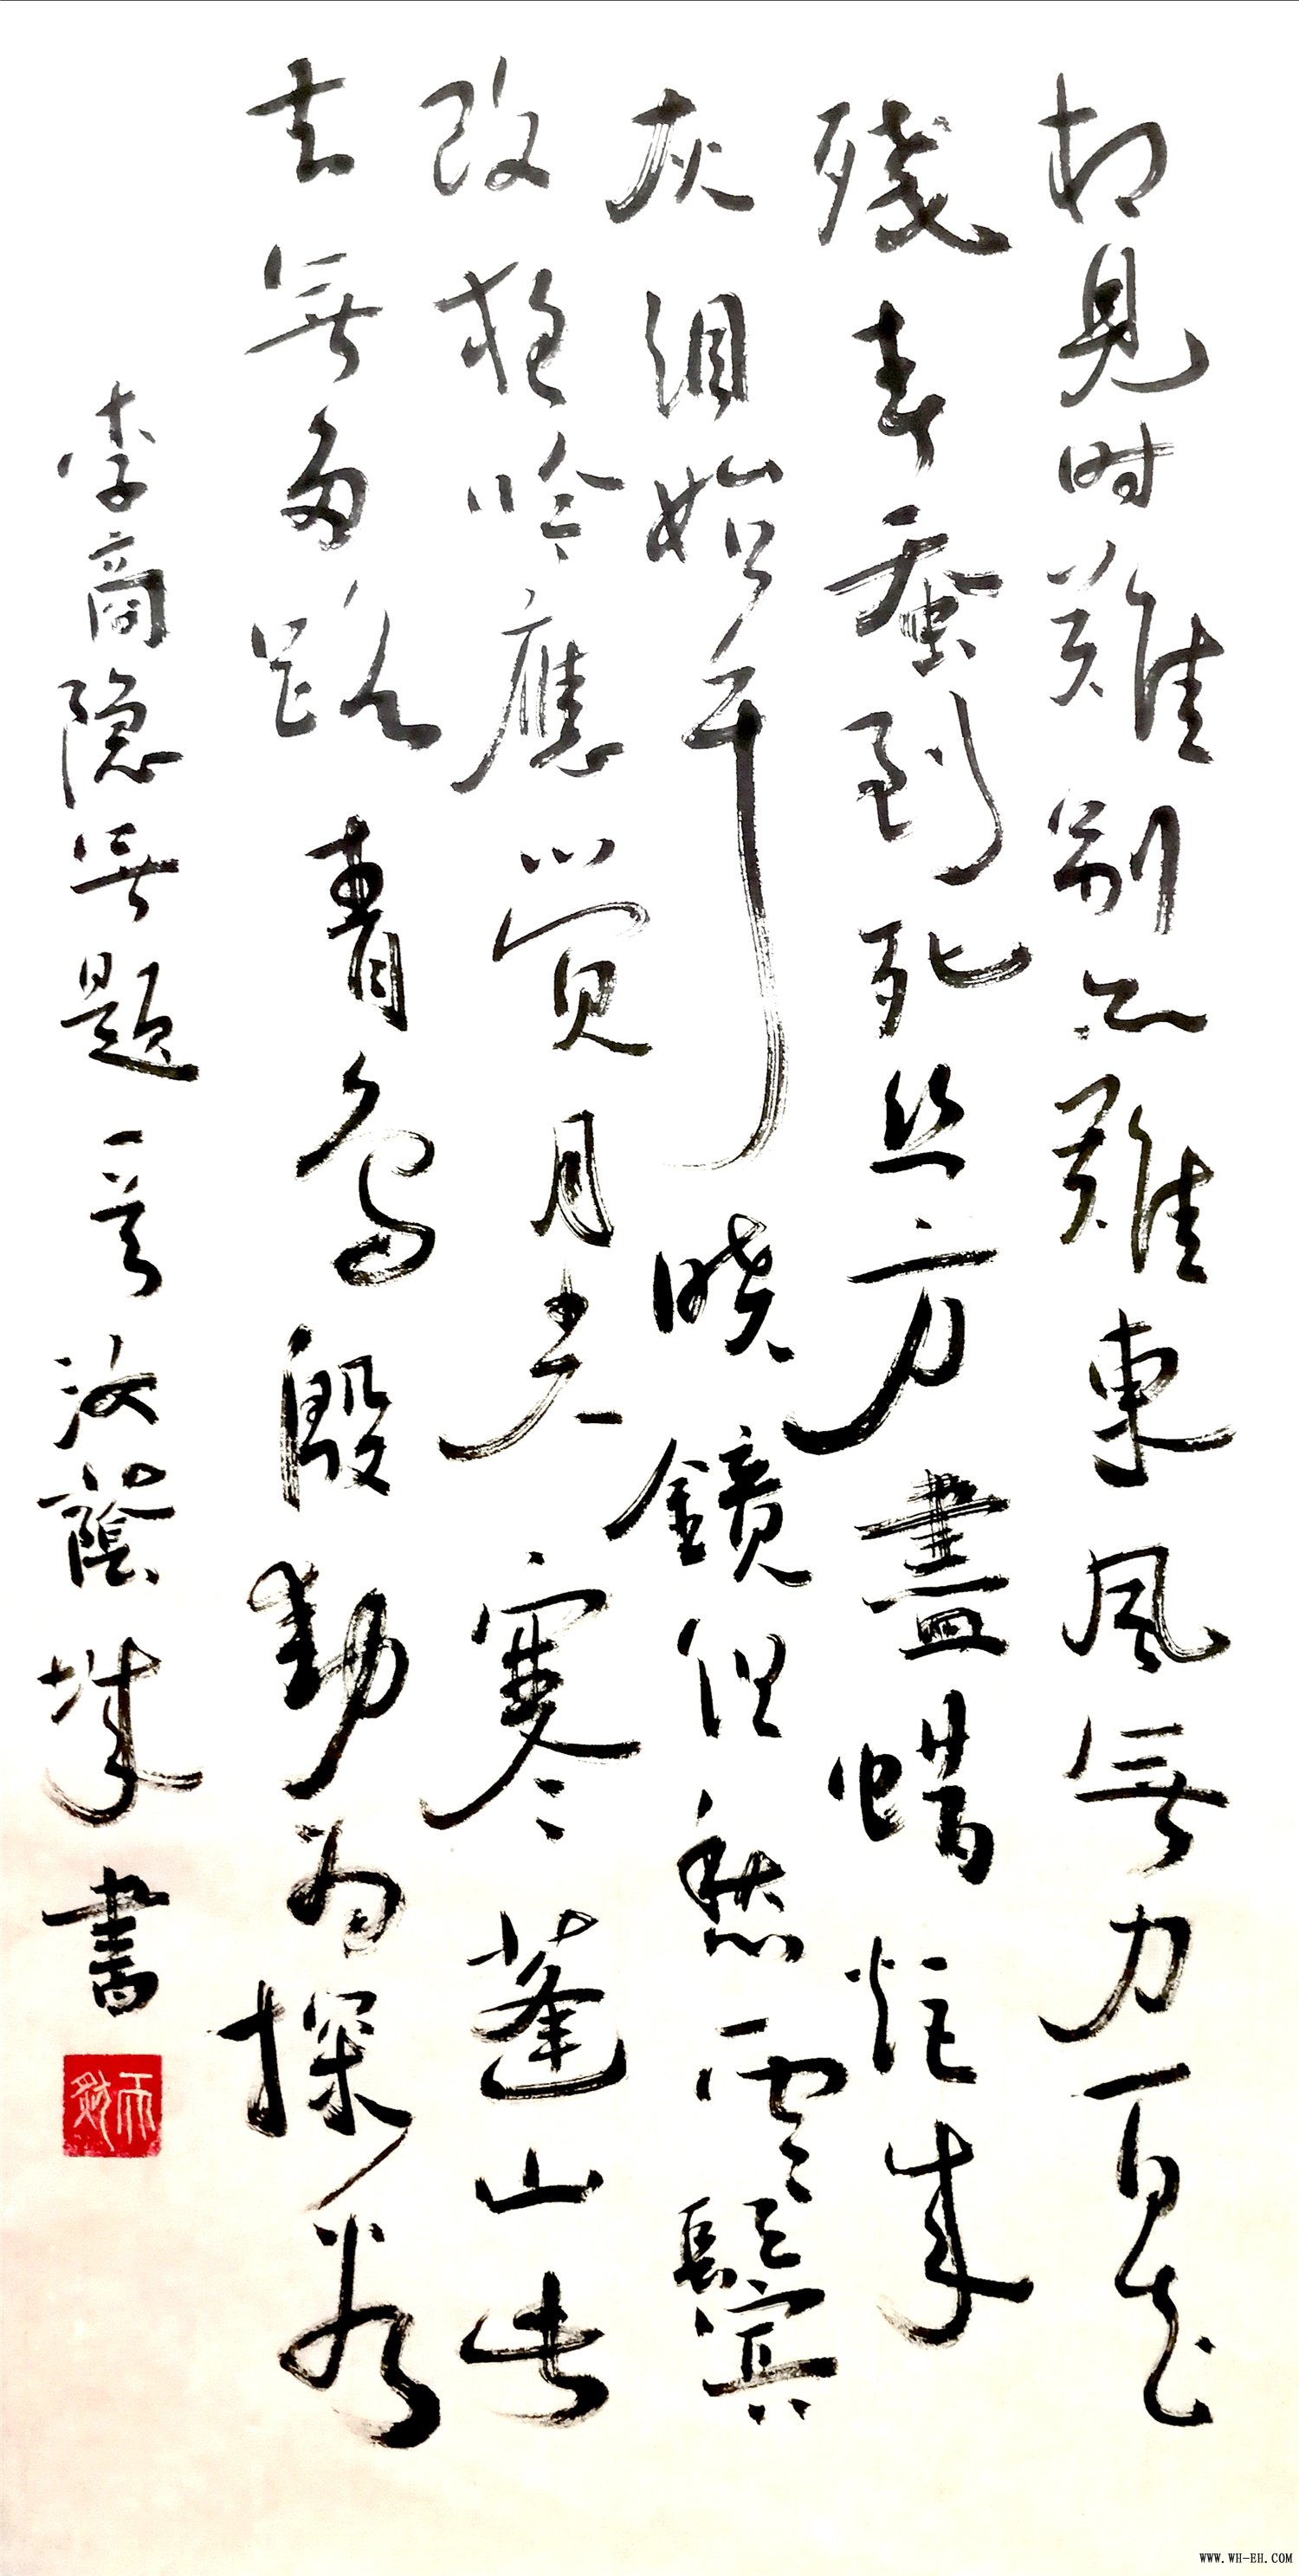 相見时難别亦難東風無力百花
殘春蚕到死丝方盡蜡炬成
灰泪始干晓鏡但愁雲鬓
改夜吟應觉月光寒蓬山此
去無多路青鳥殷勤为探看
李商隐無題一首汝蔭城書
WWW.WH-EH.COM